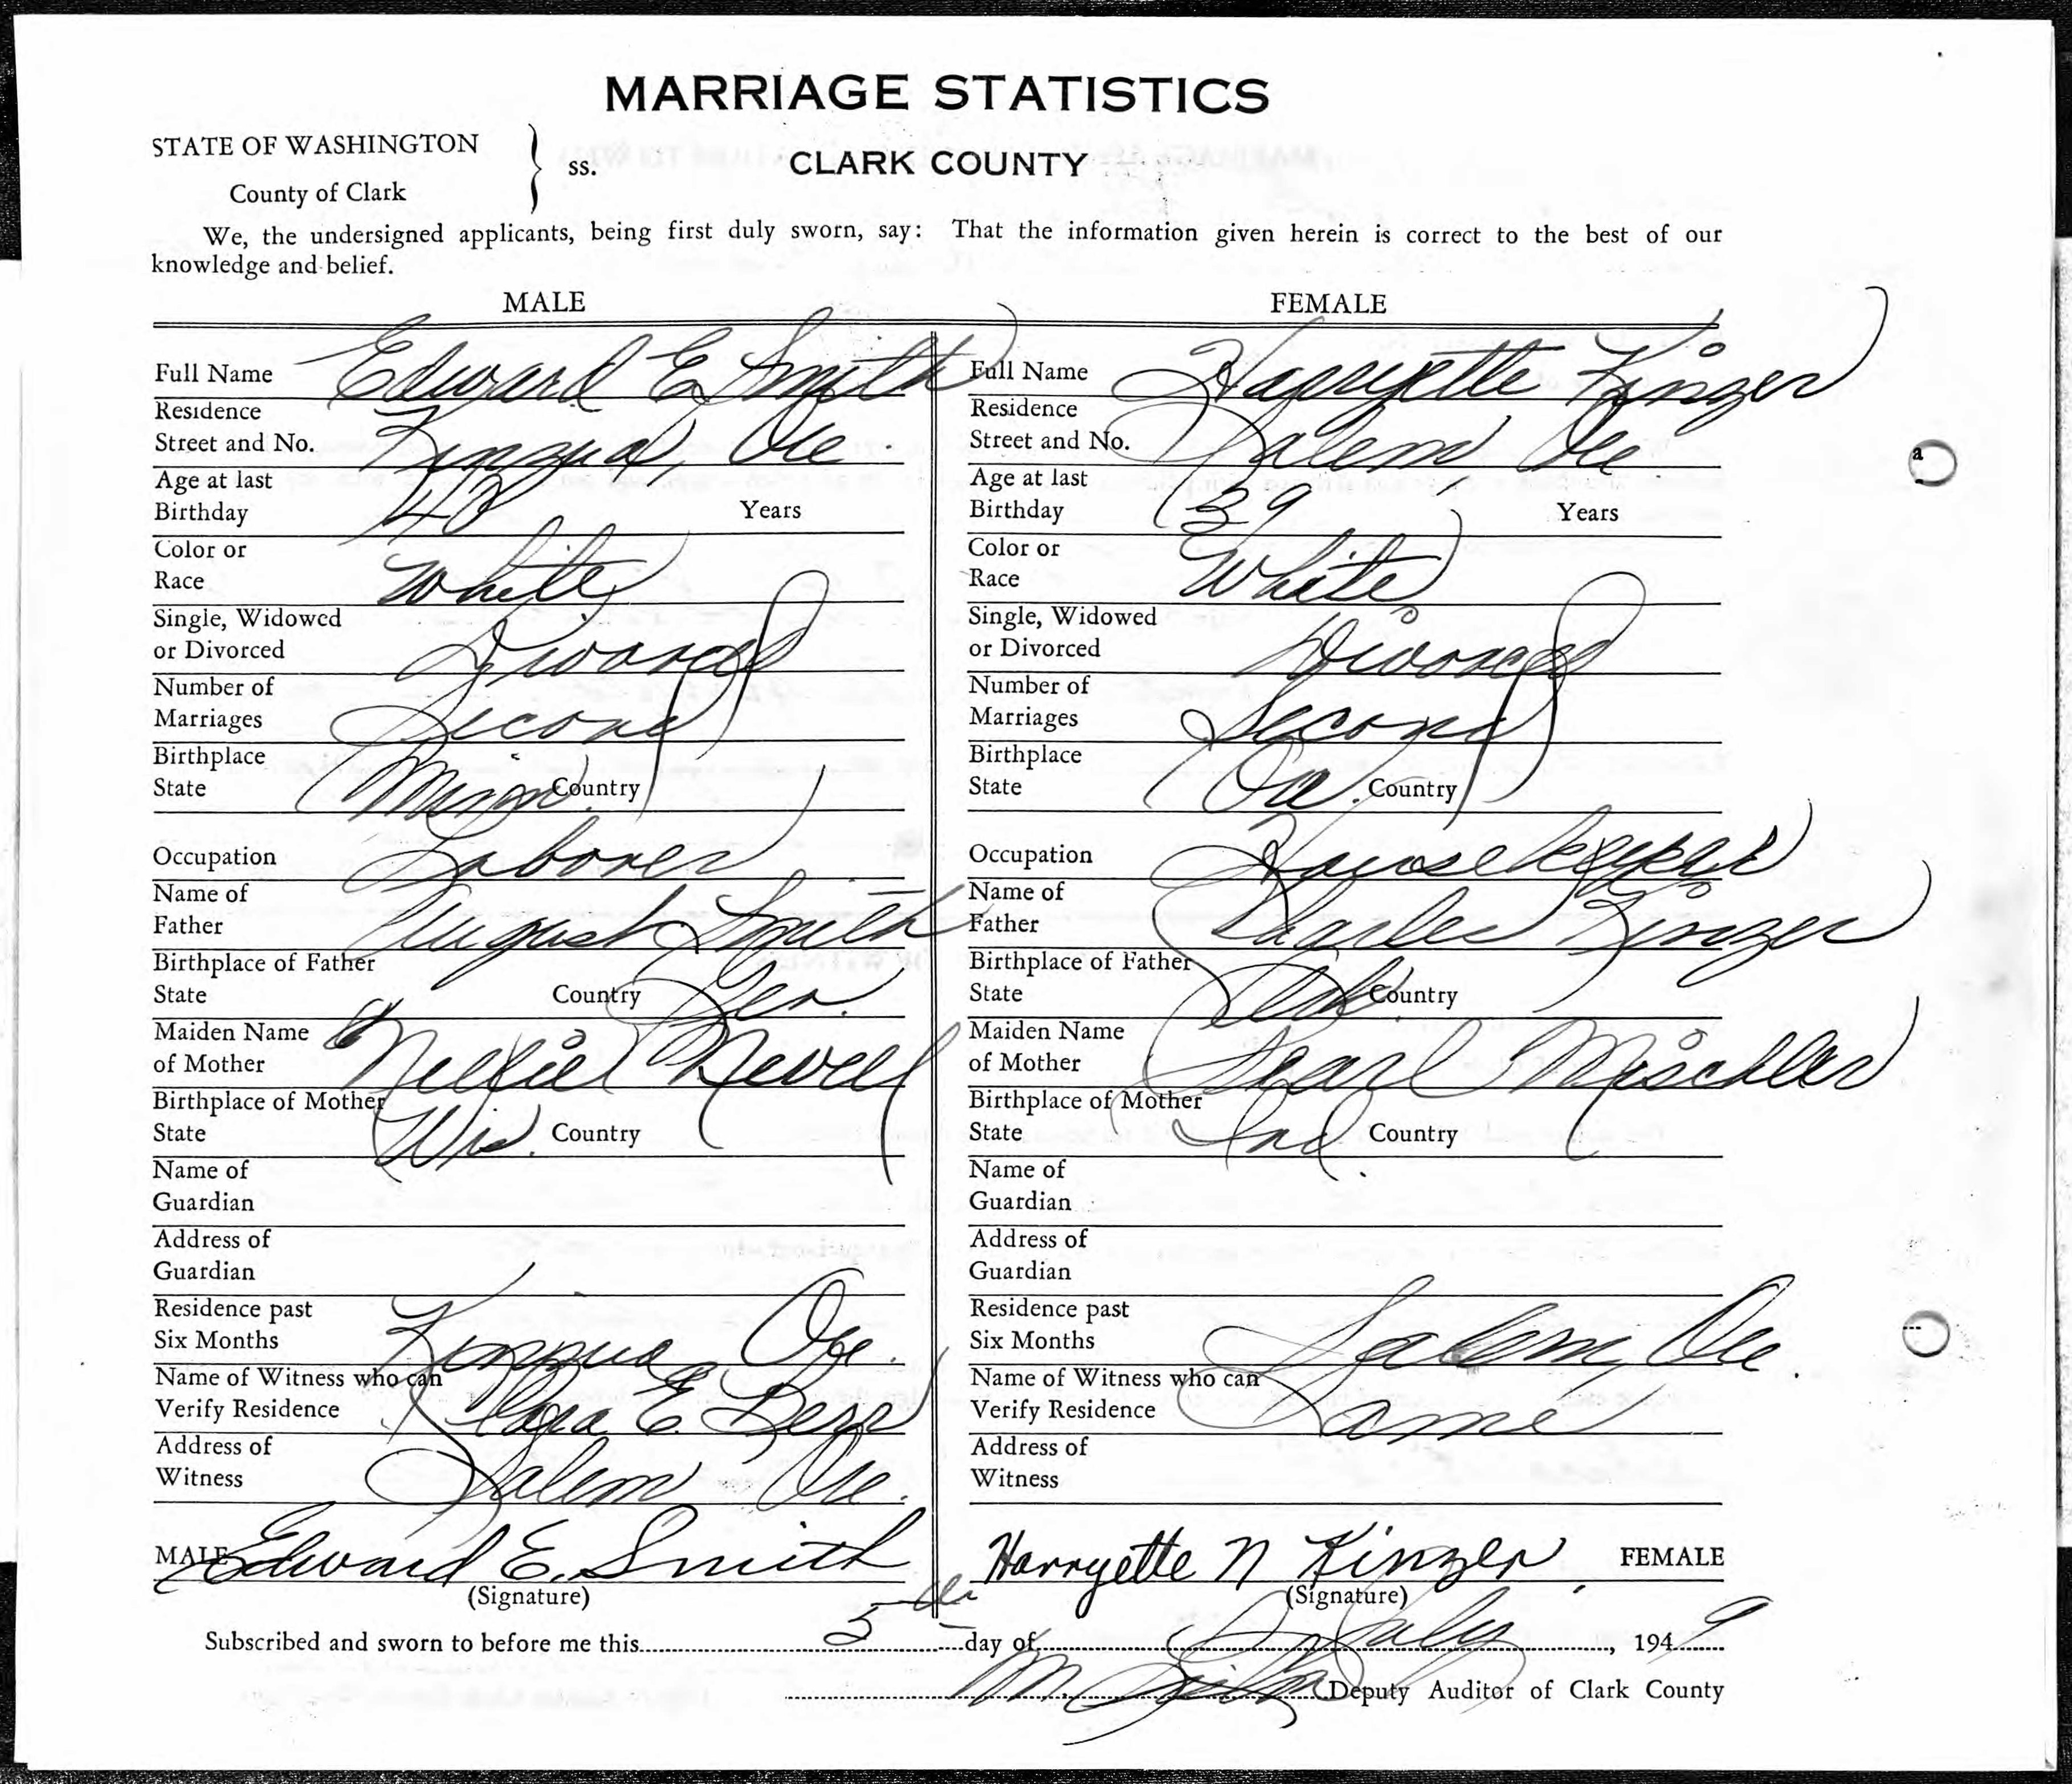 MARRIAGE STATISTICS
STATE OF WASHINGTON
County of Clark
ss.
CLARK COUNTY
We, the undersigned applicants, being first duly sworn, say: That the information given herein is correct to the best of our
knowledge and belief.
MALE
Full Name Edward E Smith
Residence
Street and No. Kinzua, Ore
Age at last
Birthday 48 Years
Color or
Race White
Single, Widowed
or Divorced Divorced
Number of
Marriages Second
Birthplace
State Minn. Country
Occupation Laborer
Name of
Father August Smith
Birthplace of Father
State Country Ger.
Maiden Name
of Mother Nellie Nevell
Birthplace of Mother
State Wis. Country
Name of
Guardian
Address of
Guardian
Residence past
Six Months Kinzua, Ore.
Name of Witness who can
Verify Residence E.
Address of
Witness Salem Ore.
MALE Edward E. Smith
(Signature)
FEMALE
Full Name Harryette Kinzer
Residence
Street and No. Salem Ore
Age at last
Birthday 39 Years
Color or
Race White
Single, Widowed
or Divorced Divorced
Number of
Marriages Second
Birthplace
State Ore. Country
Occupation Housekeeper
Name of
Father Charles Kinzer
Birthplace of Father
State Country
Maiden Name
of Mother Pearl Mischler
Birthplace of Mother
State Ind. Country
Name of
Guardian
Address of
Guardian
Residence past
Six Months Salem, Ore
Name of Witness who can
Verify Residence Same
Address of
Witness
Harryette N Kinzer FEMALE
(Signature)
Subscribed and sworn to before me this 5th day of July, 1949
M Deputy Auditor of Clark County